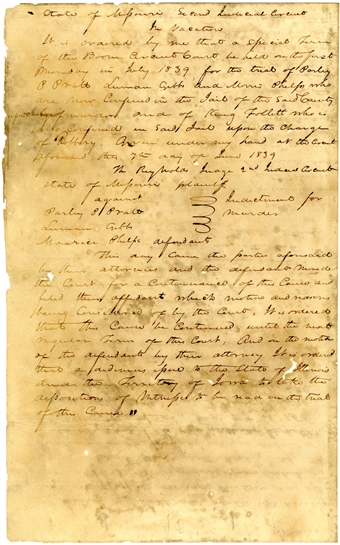 State of Missouri Second Judicial Circuit
In Vacation
It is ordered by me that a Special Term
of the Boon Circuit Court be held on the first
Monday in July 1839 for the trial of Parley
P Pratt Luman Gibbs and Morris Phelps who
are now Confined in the Jail of the Said County
murder and of King Follett who is
Confined in Said Jail upon the Charge
of Robbery Given under my hand at the Court
aforesaid this 7th day of June 1839
Tho Reynolds Judge 2nd Judicial Circuit
State of Missouri plantiff
against
Parley P Pratt Indictment for
Luman Gibbs murder
Maurice Phelps defendant
This day came the parties aforesaid
by their attornies and the defendants moved
the Court for a Continuance of this Cause and
filed their affidavit which motion and
being Considered of by the Court, It is ordered
that this Cause be Continued until the next
regular Term of this Court, And on the motion
of the defendants by their attorney It is ordered
that a issue to the State of Illinois
and the Territory of Iowa to take the
depositions of Witnesses to be read on the trial
of this Cause "